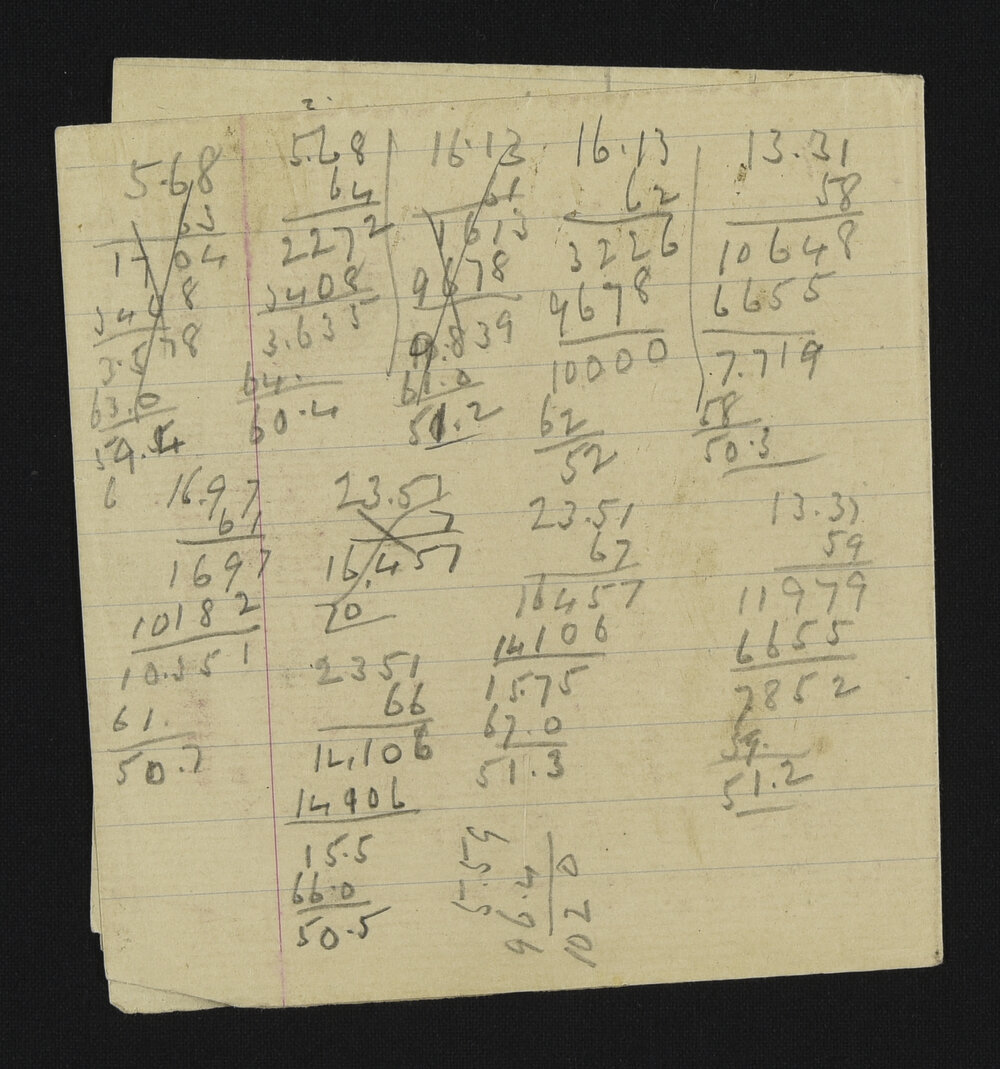 5.68
63
1704
3408
3.578
63.0
59.4
5.68
64
2272
3408
3.635
64.
60.4
16.13
61
1613
9678
9.839
61.0
51.2
16.13
62
3226
9678
10000
62
52
13.31
58
10648
6655
7.719
58
50.3
6
16.97
61
1697
10182
10.351
61.
50.7
23.51
7
16.457
70
2351
66
14106
14906
15.5
66.0
50.5
23.51
67
16457
14106
15.75
67.0
51.3
13.31
59
11979
6655
7852
59.
51.2
5.59
96.4
0
102